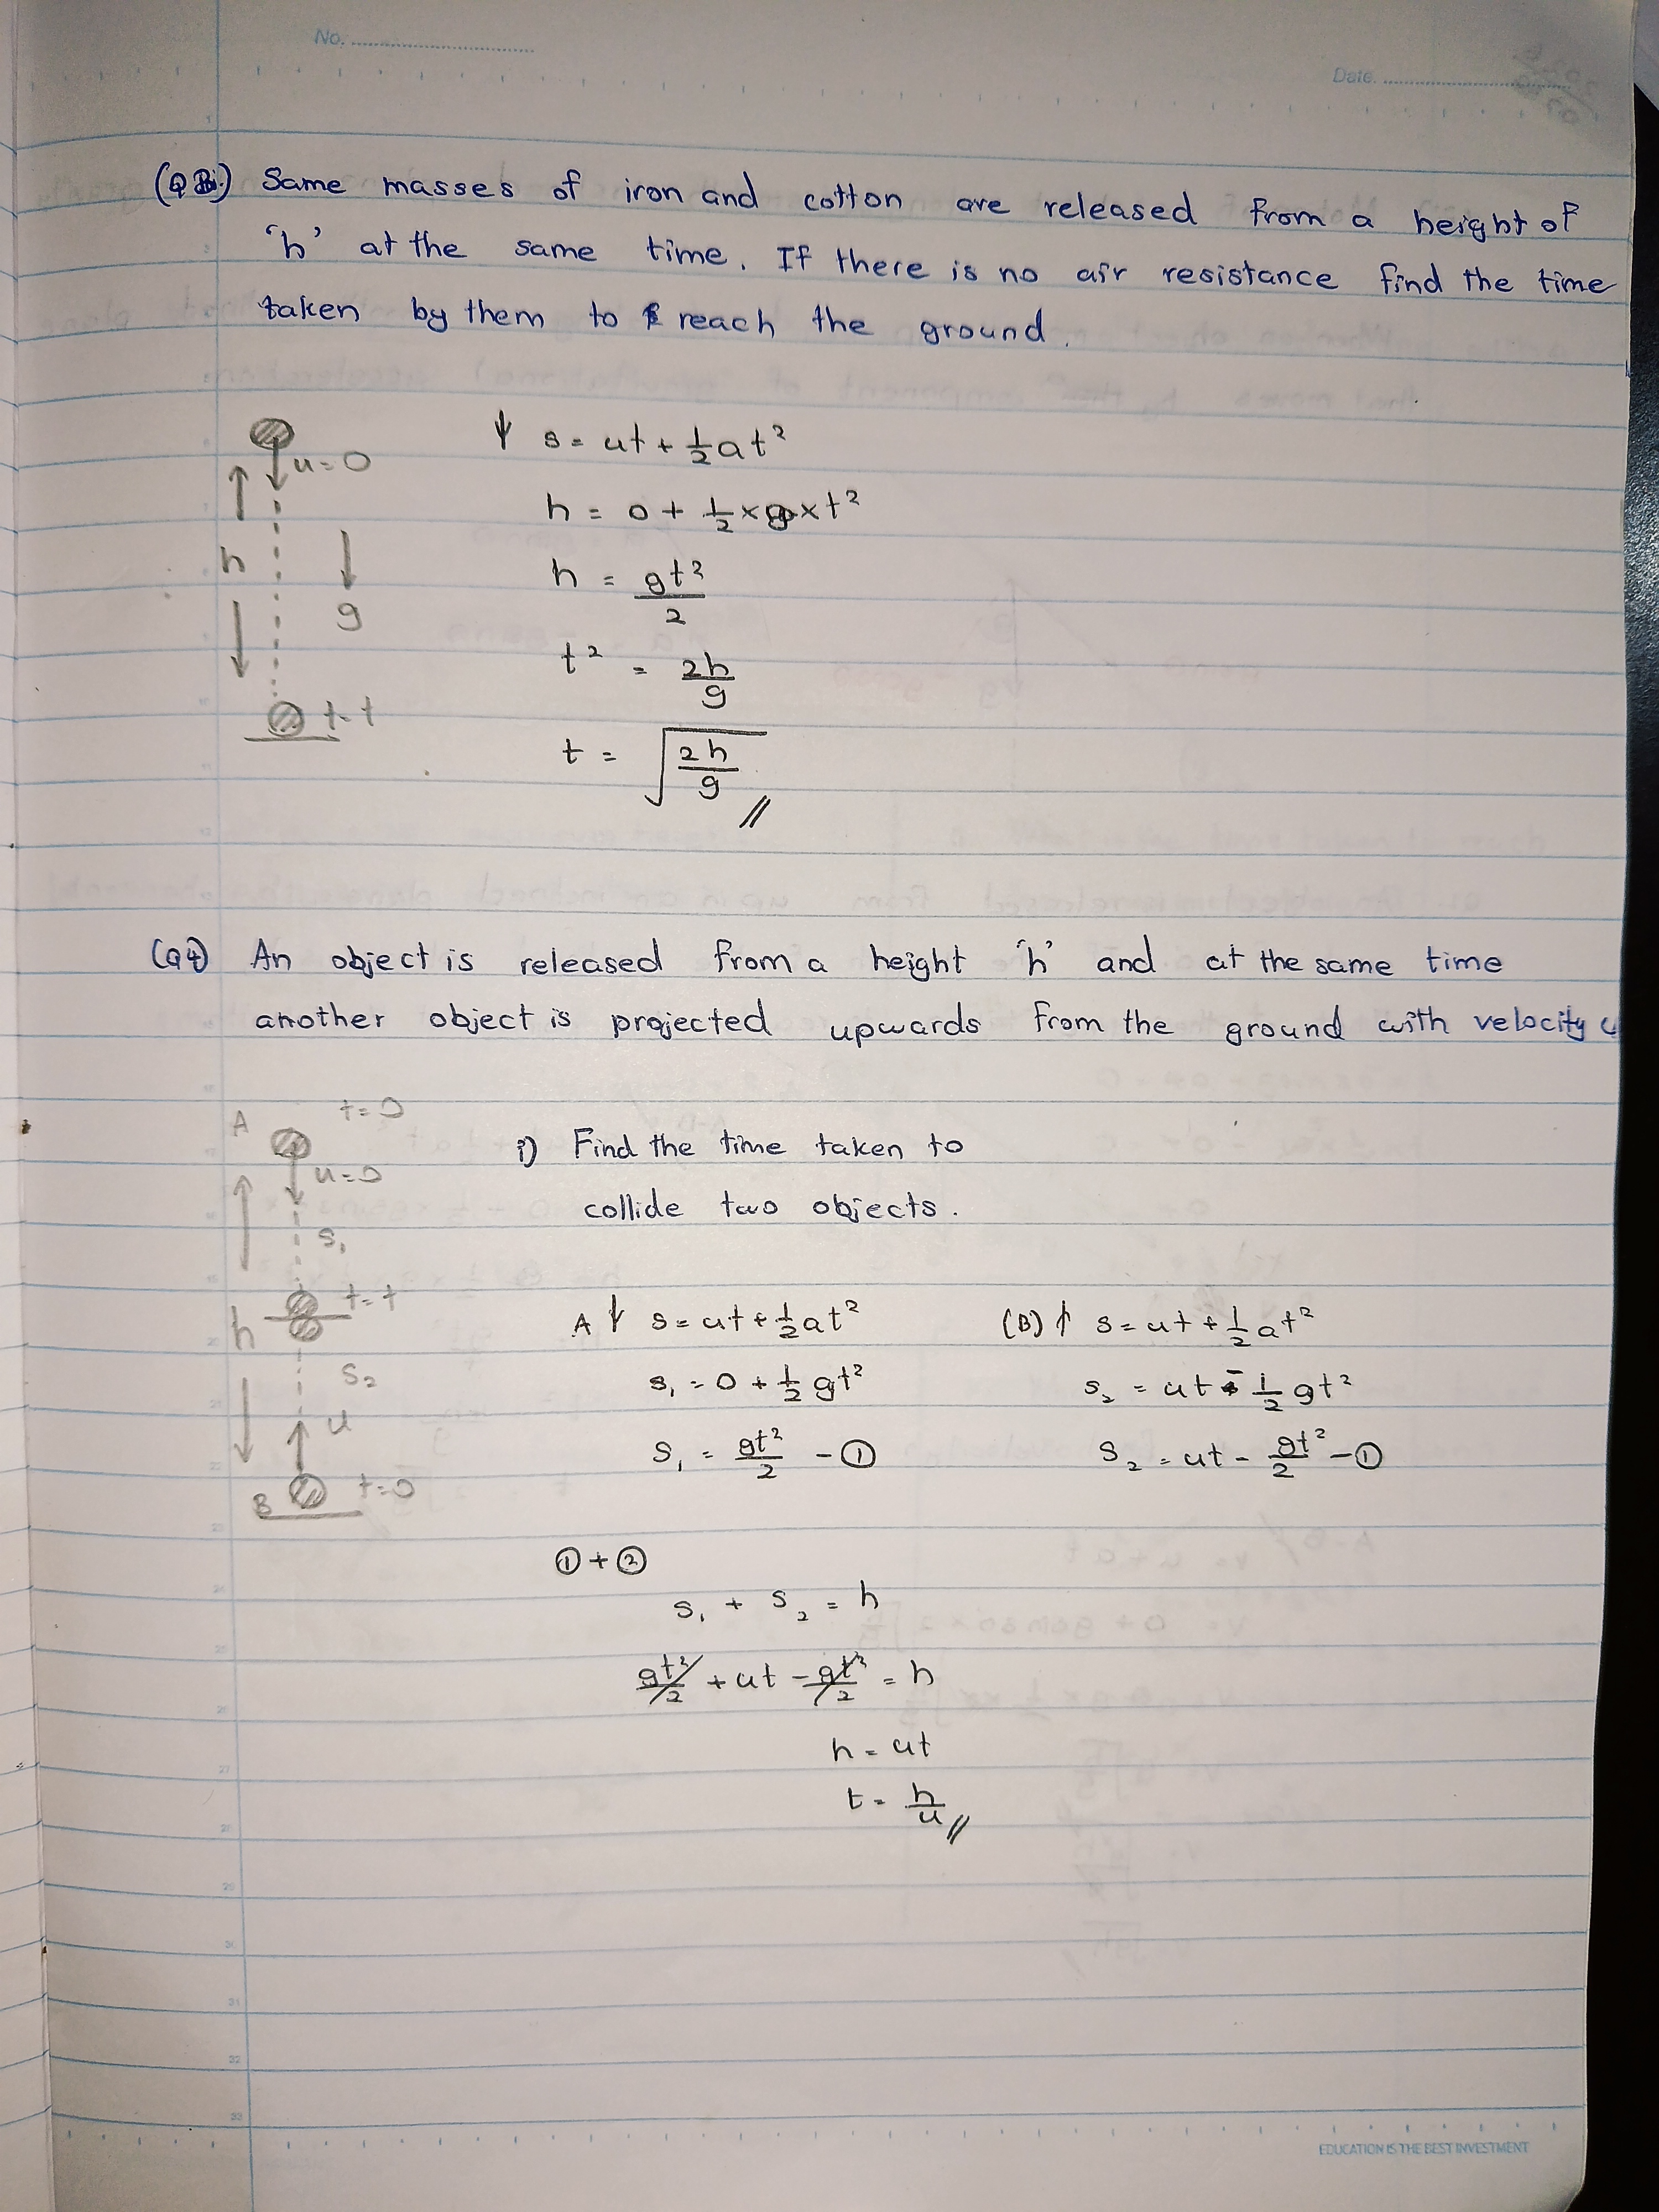 No.
Date.
(Q3.) Same masses of iron and cotton are released from a height of
'h' at the same time. If there is no air resistance find the time
taken by them to reach the ground.
u=0
h
g
t=t
↓ s = ut + ½at²
h = 0 + ½×g×t²
h = gt²/2
t² = 2h/g
t = √(2h/g) //
(Q4) An object is released from a height 'h' and at the same time
another object is projected upwards from the ground with velocity u
A t=0
u=0
s₁
t=t
h
s₂
u
B t=0
i) Find the time taken to
collide two objects.
A ↓ s = ut + ½at²
s₁ = 0 + ½gt²
s₁ = gt²/2 – ①
(B) ↑ s = ut + ½at²
s₂ = ut - ½gt²
s₂ = ut - gt²/2 – ①
① + ②
s₁ + s₂ = h
gt²/2 + ut - gt²/2 = h
h = ut
t = h/u //
EDUCATION IS THE BEST INVESTMENT